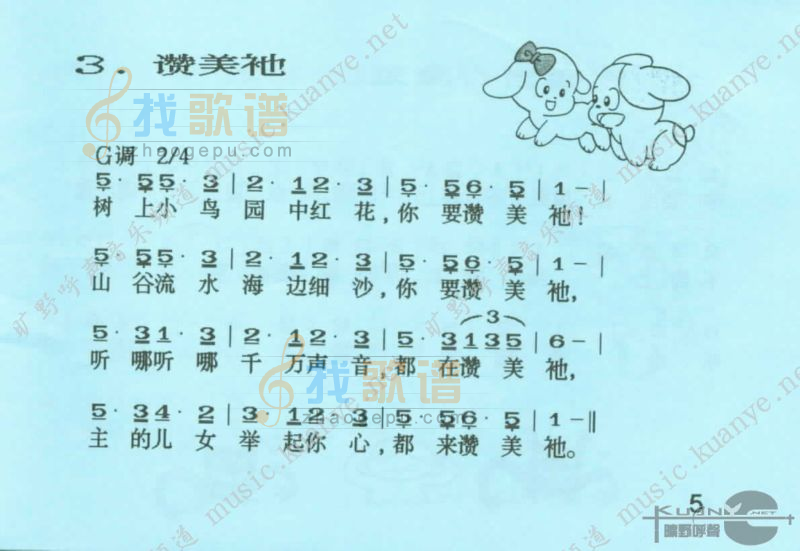 3. 赞美祂
G调 2/4
5· 55· 3 | 2· 12· 3 | 5· 56· 5 | 1 - |
树 上小 鸟 园 中红 花,你 要赞 美 祂!
5· 55· 3 | 2· 12· 3 | 5· 56· 5 | 1 - |
山 谷流 水 海 边细 沙,你 要赞 美 祂,
3
5· 31· 3 | 2· 12· 3 | 5· 3135 | 6 - |
听 哪听 哪 千 万声 音,都 在赞 美 祂,
5· 34· 2 | 3· 12· 3 | 5· 56· 5 | 1 - ‖
主 的儿 女 举 起你 心,都 来赞 美 祂。
5
找歌谱
zhaogepu.com
找歌谱
zhaogepu.com
旷野呼声音乐频道 music.kuanye.net
music.kuanye.net
music.kuanye.net
KUANY.NET
曠野呼聲